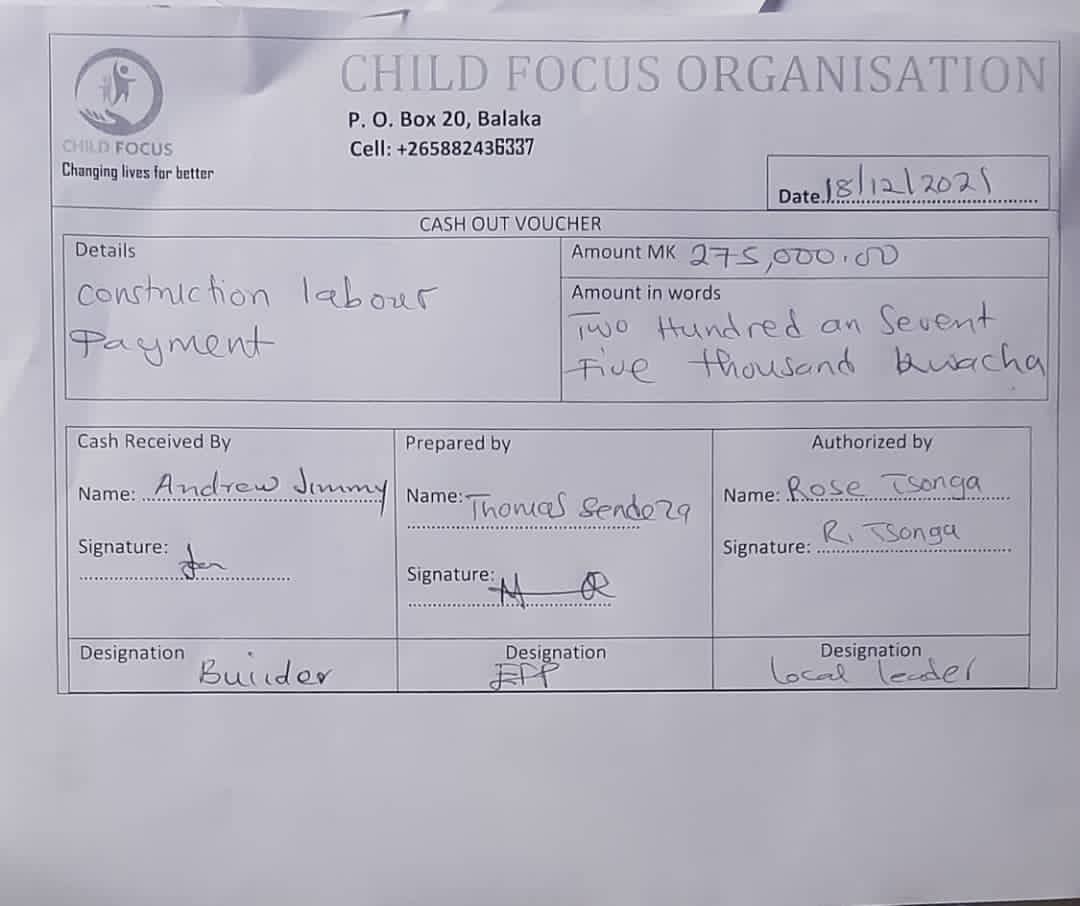 CHILD FOCUS ORGANISATION
P. O. Box 20, Balaka
Cell: +265882436337
CHILD FOCUS
Changing lives for better
Date 18/12/2021
CASH OUT VOUCHER
Details
Construction labour
Payment
Amount MK 275,000.00
Amount in words
Two Hundred an Sevent
Five thousand kwacha
Cash Received By
Name: Andrew Jimmy
Signature:
Designation
Builder
Prepared by
Name: Thomas Sendeza
Signature:
Designation
Authorized by
Name: Rose Tsonga
Signature: R. Tsonga
Designation
local leader